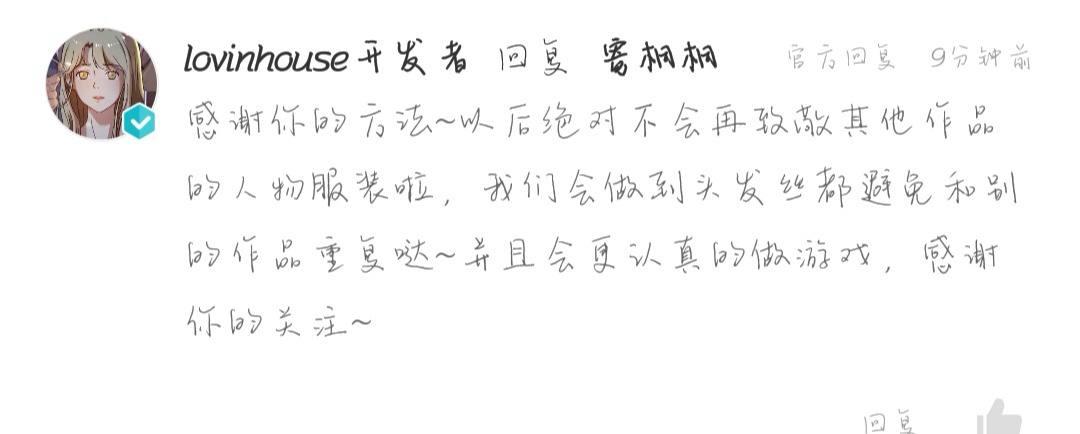 lovinhouse开发者 回复 蜜桐桐 官方回复 9分钟前
感谢你的方法~以后绝对不会再致敬其他作品
的人物服装啦，我们会做到头发丝都避免和别
的作品重复哒~并且会更认真的做游戏，感谢
你的关注~
回复